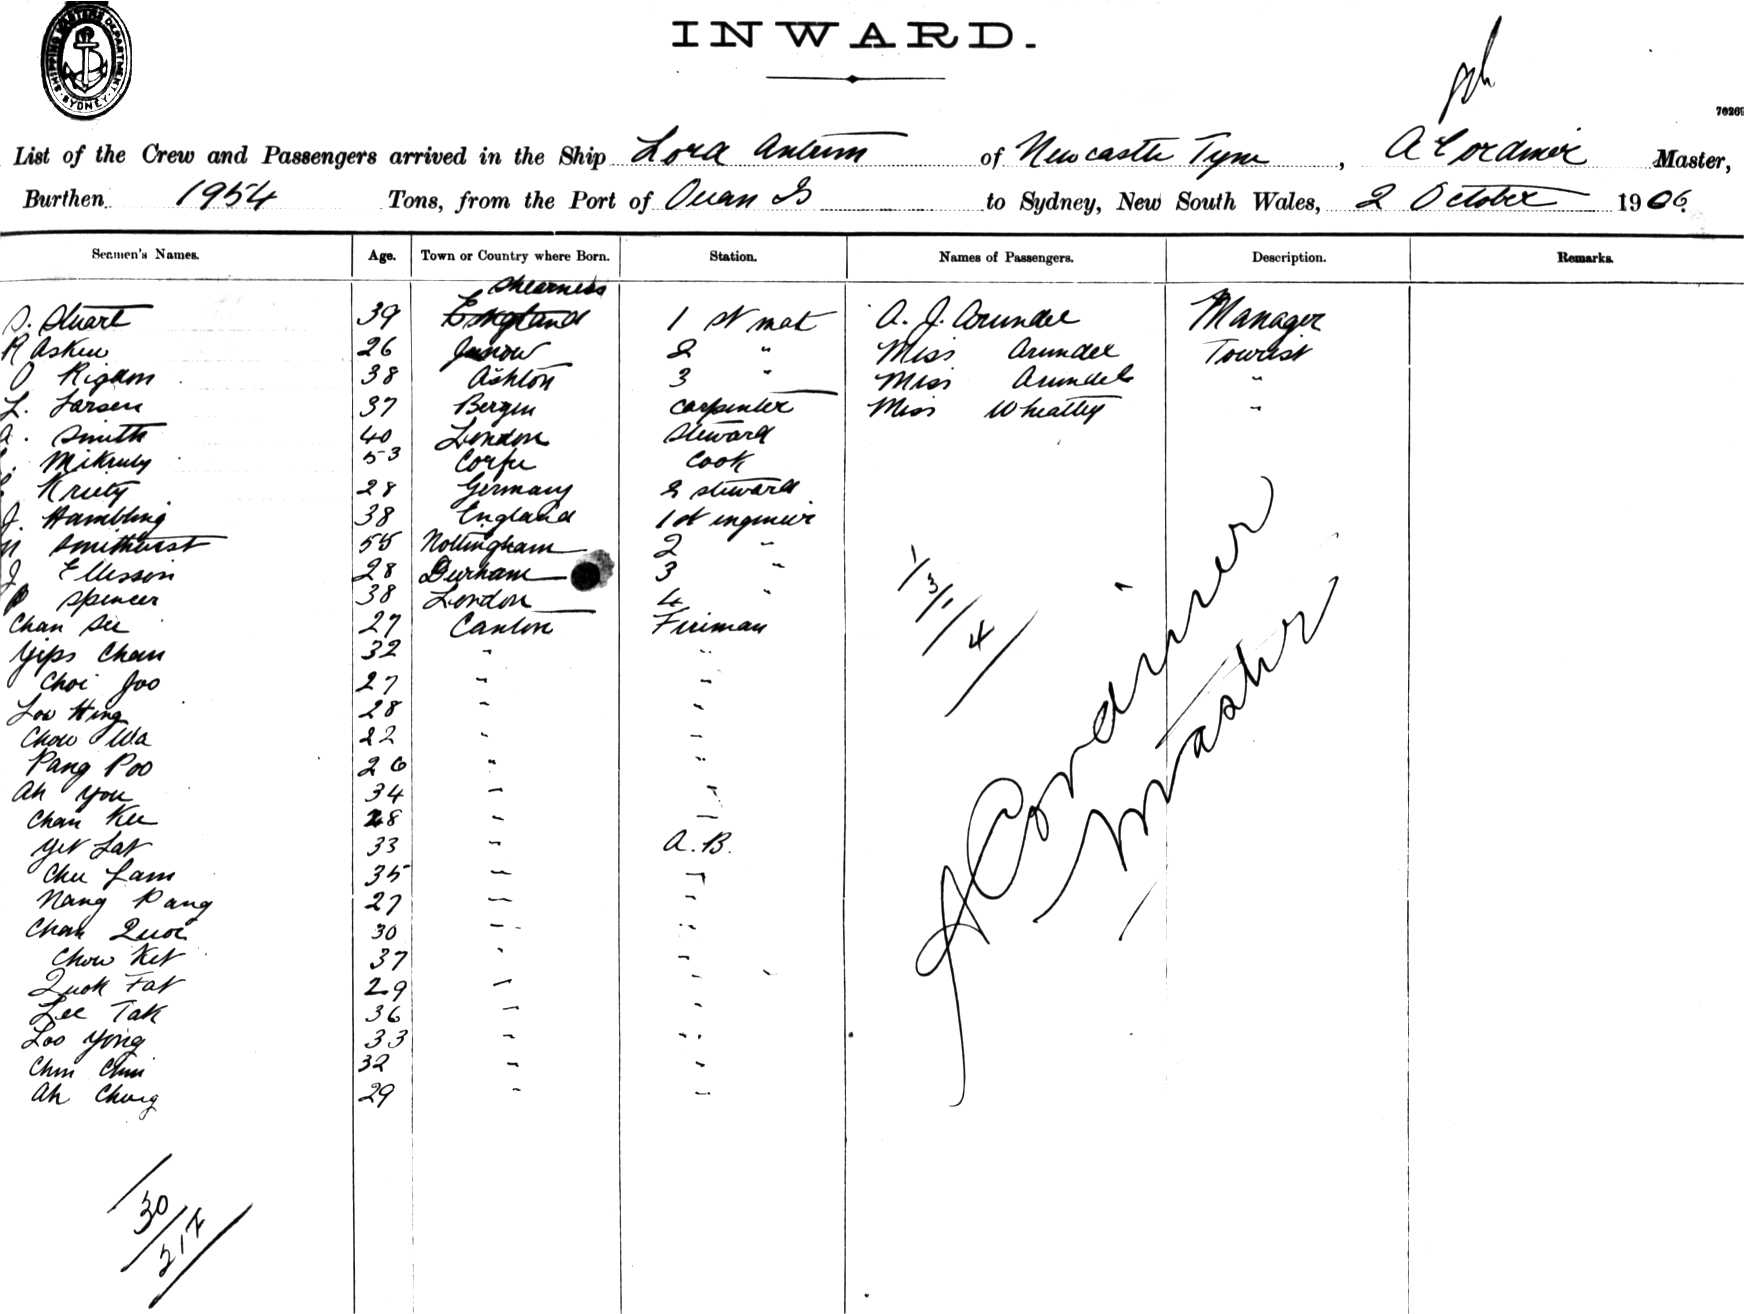 SHIPPING MASTERS DEPARTMENT SYDNEY
INWARD.
70269
List of the Crew and Passengers arrived in the Ship Lord Antrim of Newcastle Tyne, A Cordiner Master,
Burthen 1954 Tons, from the Port of Ocean Is to Sydney, New South Wales, 2 October 1906.
Seamen's Names. Age. Town or Country where Born. Station. Names of Passengers. Description. Remarks.
Sheerness
S. Stuart 39 England 1st mate A. J. Arundel Manager
R Askew 26 Jarrow 2 " Miss Arundel Tourist
O Rigdon 38 Ashton 3 " Miss Arundel "
L. Larsen 37 Bergen Carpenter Miss Wheatley "
Smith 40 London Steward
53 Corfu Cook
28 Germany 2 steward
J. Hambling 38 England 1st engineer
Smithurst 55 Nottingham 2 "
J Ellisson 28 Durham 3 "
P Spencer 38 London 4 "
Chan See 27 Canton Fireman
Yips Chan 32 " "
Choi Joo 27 " "
Low Hing 28 " "
Chow Wa 22 " "
Pang Poo 26 " "
Ah You 34 " "
Chan Kee 28 " "
Yet Lat 33 " A.B.
Chu Lam 35 " "
Nang Pang 27 " "
Chan Quoi 30 " "
Chow Ket 37 " "
Quok Fat 29 " "
Lee Tak 36 " "
Loo Yong 33 " "
Chin Chin 32 " "
Ah Chung 29 " "
1/3/1/4
A Cordiner
Master
30/217